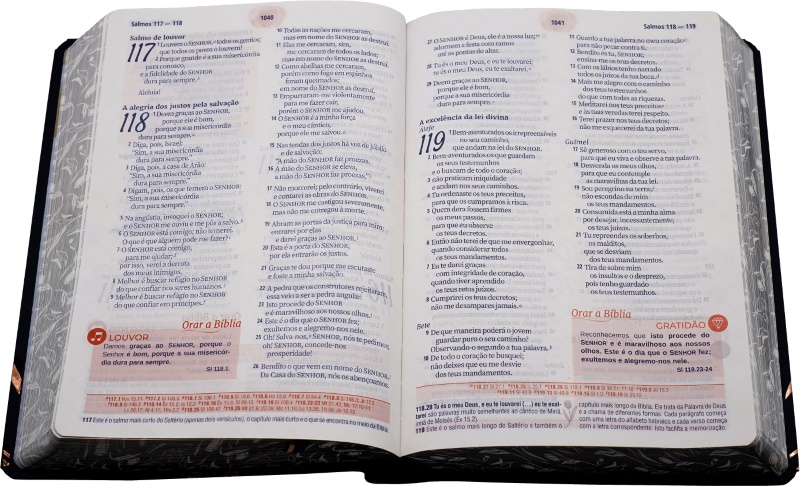 Salmos 117 — 118
1040
Salmo de louvor
117
1 Louvem o SENHOR, todos os gentios;
que todos os povos o louvem!
2 Porque grande é a sua misericórdia
para conosco,
e a fidelidade do SENHOR
dura para sempre.
Aleluia!
A alegria dos justos pela salvação
118
1 Deem graças ao SENHOR,
porque ele é bom,
porque a sua misericórdia
dura para sempre.
2 Diga, pois, Israel:
"Sim, a sua misericórdia
dura para sempre."
3 Diga, pois, a casa de Arão:
"Sim, a sua misericórdia
dura para sempre."
4 Digam, pois, os que temem o SENHOR:
"Sim, a sua misericórdia
dura para sempre."
5 Na angústia, invoquei o SENHOR,
e o SENHOR me ouviu e me pôs a salvo.
6 O SENHOR está comigo; não temerei.
O que é que alguém pode me fazer?
7 O SENHOR está comigo,
para me ajudar;
por isso, verei a derrota
dos meus inimigos.
8 Melhor é buscar refúgio no SENHOR
do que confiar nos seres humanos.
9 Melhor é buscar refúgio no SENHOR
do que confiar em príncipes.
Orar a Bíblia
LOUVOR
Damos graças ao SENHOR, porque o
Senhor é bom, porque a sua misericór-
dia dura para sempre.
Sl 118.1
10 Todas as nações me cercaram,
mas em nome do SENHOR as destruí.
11 Elas me cercaram, sim,
me cercaram de todos os lados;
mas em nome do SENHOR as destruí.
12 Como abelhas me cercaram,
porém como fogo em espinhos
foram queimadas;
em nome do SENHOR as destruí.
13 Empurraram-me violentamente
para me fazer cair,
porém o SENHOR me ajudou.
14 O SENHOR é a minha força
e o meu cântico,
porque ele me salvou.
15 Nas tendas dos justos há voz de júbilo
e de salvação:
"A mão do SENHOR faz proezas.
16 A mão do SENHOR se eleva,
a mão do SENHOR faz proezas."
17 Não morrerei; pelo contrário, viverei
e contarei as obras do SENHOR.
18 O SENHOR me castigou severamente,
mas não me entregou à morte.
19 Abram as portas da justiça para mim;
entrarei por elas
e darei graças ao SENHOR.
20 Esta é a porta do SENHOR;
por ela entrarão os justos.
21 Graças te dou porque me escutaste
e foste a minha salvação.
22 A pedra que os construtores rejeitaram,
essa veio a ser a pedra angular.
23 Isto procede do SENHOR
e é maravilhoso aos nossos olhos.
24 Este é o dia que o SENHOR fez;
exultemos e alegremo-nos nele.
25 Oh! Salva-nos, SENHOR, nós te pedimos;
oh! SENHOR, concede-nos
prosperidade!
26 Bendito o que vem em nome do SENHOR.
Da Casa do SENHOR, nós os abençoamos.
117 Este é o salmo mais curto do Saltério (apenas dois versículos), o capítulo mais curto e o que se encontra no meio da Bíblia.
1041
Salmos 118 — 119
27 O SENHOR é Deus, ele é a nossa luz;
adornem a festa com ramos
até os pontas do altar.
28 Tu és o meu Deus, e eu te louvarei;
tu és o meu Deus, eu te exaltarei.
29 Deem graças ao SENHOR,
porque ele é bom,
porque a sua misericórdia
dura para sempre.
A excelência da lei divina
Álefe
119
1 Bem-aventurados os irrepreensíveis
no seu caminho,
que andam na lei do SENHOR.
2 Bem-aventurados os que guardam
os seus testemunhos
e o buscam de todo o coração;
3 não praticam iniquidade
e andam nos seus caminhos.
4 Tu ordenaste os teus preceitos,
para que os cumpramos à risca.
5 Quem dera fossem firmes
os meus passos,
para que eu observe
os teus decretos.
6 Então não terei de que me envergonhar,
quando considerar todos
os teus mandamentos.
7 Eu te darei graças
com integridade de coração,
quando tiver aprendido
os teus retos juízos.
8 Cumprirei os teus decretos;
não me desampares jamais.
Bete
9 De que maneira poderá o jovem
guardar puro o seu caminho?
Observando-o segundo a tua palavra.
10 De todo o coração te busquei;
não deixes que eu me desvie
dos teus mandamentos.
11 Guardo a tua palavra no meu coração
para não pecar contra ti.
12 Bendito és tu, SENHOR;
ensina-me os teus decretos.
13 Com os lábios tenho narrado
todos os juízos da tua boca.
14 Mais me alegro com o caminho
dos teus testemunhos
do que com todas as riquezas.
15 Meditarei nos teus preceitos
e às tuas veredas terei respeito.
16 Terei prazer nos teus decretos;
não me esquecerei da tua palavra.
Guímel
17 Sê generoso com o teu servo,
para que eu viva e observe a tua palavra.
18 Desvenda os meus olhos,
para que eu contemple
as maravilhas da tua lei.
19 Sou peregrino na terra;
não escondas de mim
os teus mandamentos.
20 Consumida está a minha alma
por desejar, incessantemente,
os teus juízos.
21 Tu repreendes os soberbos,
os malditos,
que se desviam
dos teus mandamentos.
22 Tira de sobre mim
os insultos e o desprezo,
pois tenho guardado
os teus testemunhos.
Orar a Bíblia
GRATIDÃO
Reconhecemos que isto procede do
SENHOR e é maravilhoso aos nossos
olhos. Este é o dia que o SENHOR fez;
exultemos e alegremo-nos nele.
Sl 118.23-24
118.28 Tu és o meu Deus, e eu te louvarei (...) eu te exal-
tarei são palavras muito semelhantes ao cântico de Miriã,
irmã de Moisés (Êx 15.2).
119 Este é o salmo mais longo do Saltério e também o
capítulo mais longo da Bíblia. Ele trata da Palavra de Deus
e a chama de diferentes formas. Cada parágrafo começa
com uma letra do alfabeto hebraico e cada verso começa
com a letra correspondente. Isto facilita a memorização.